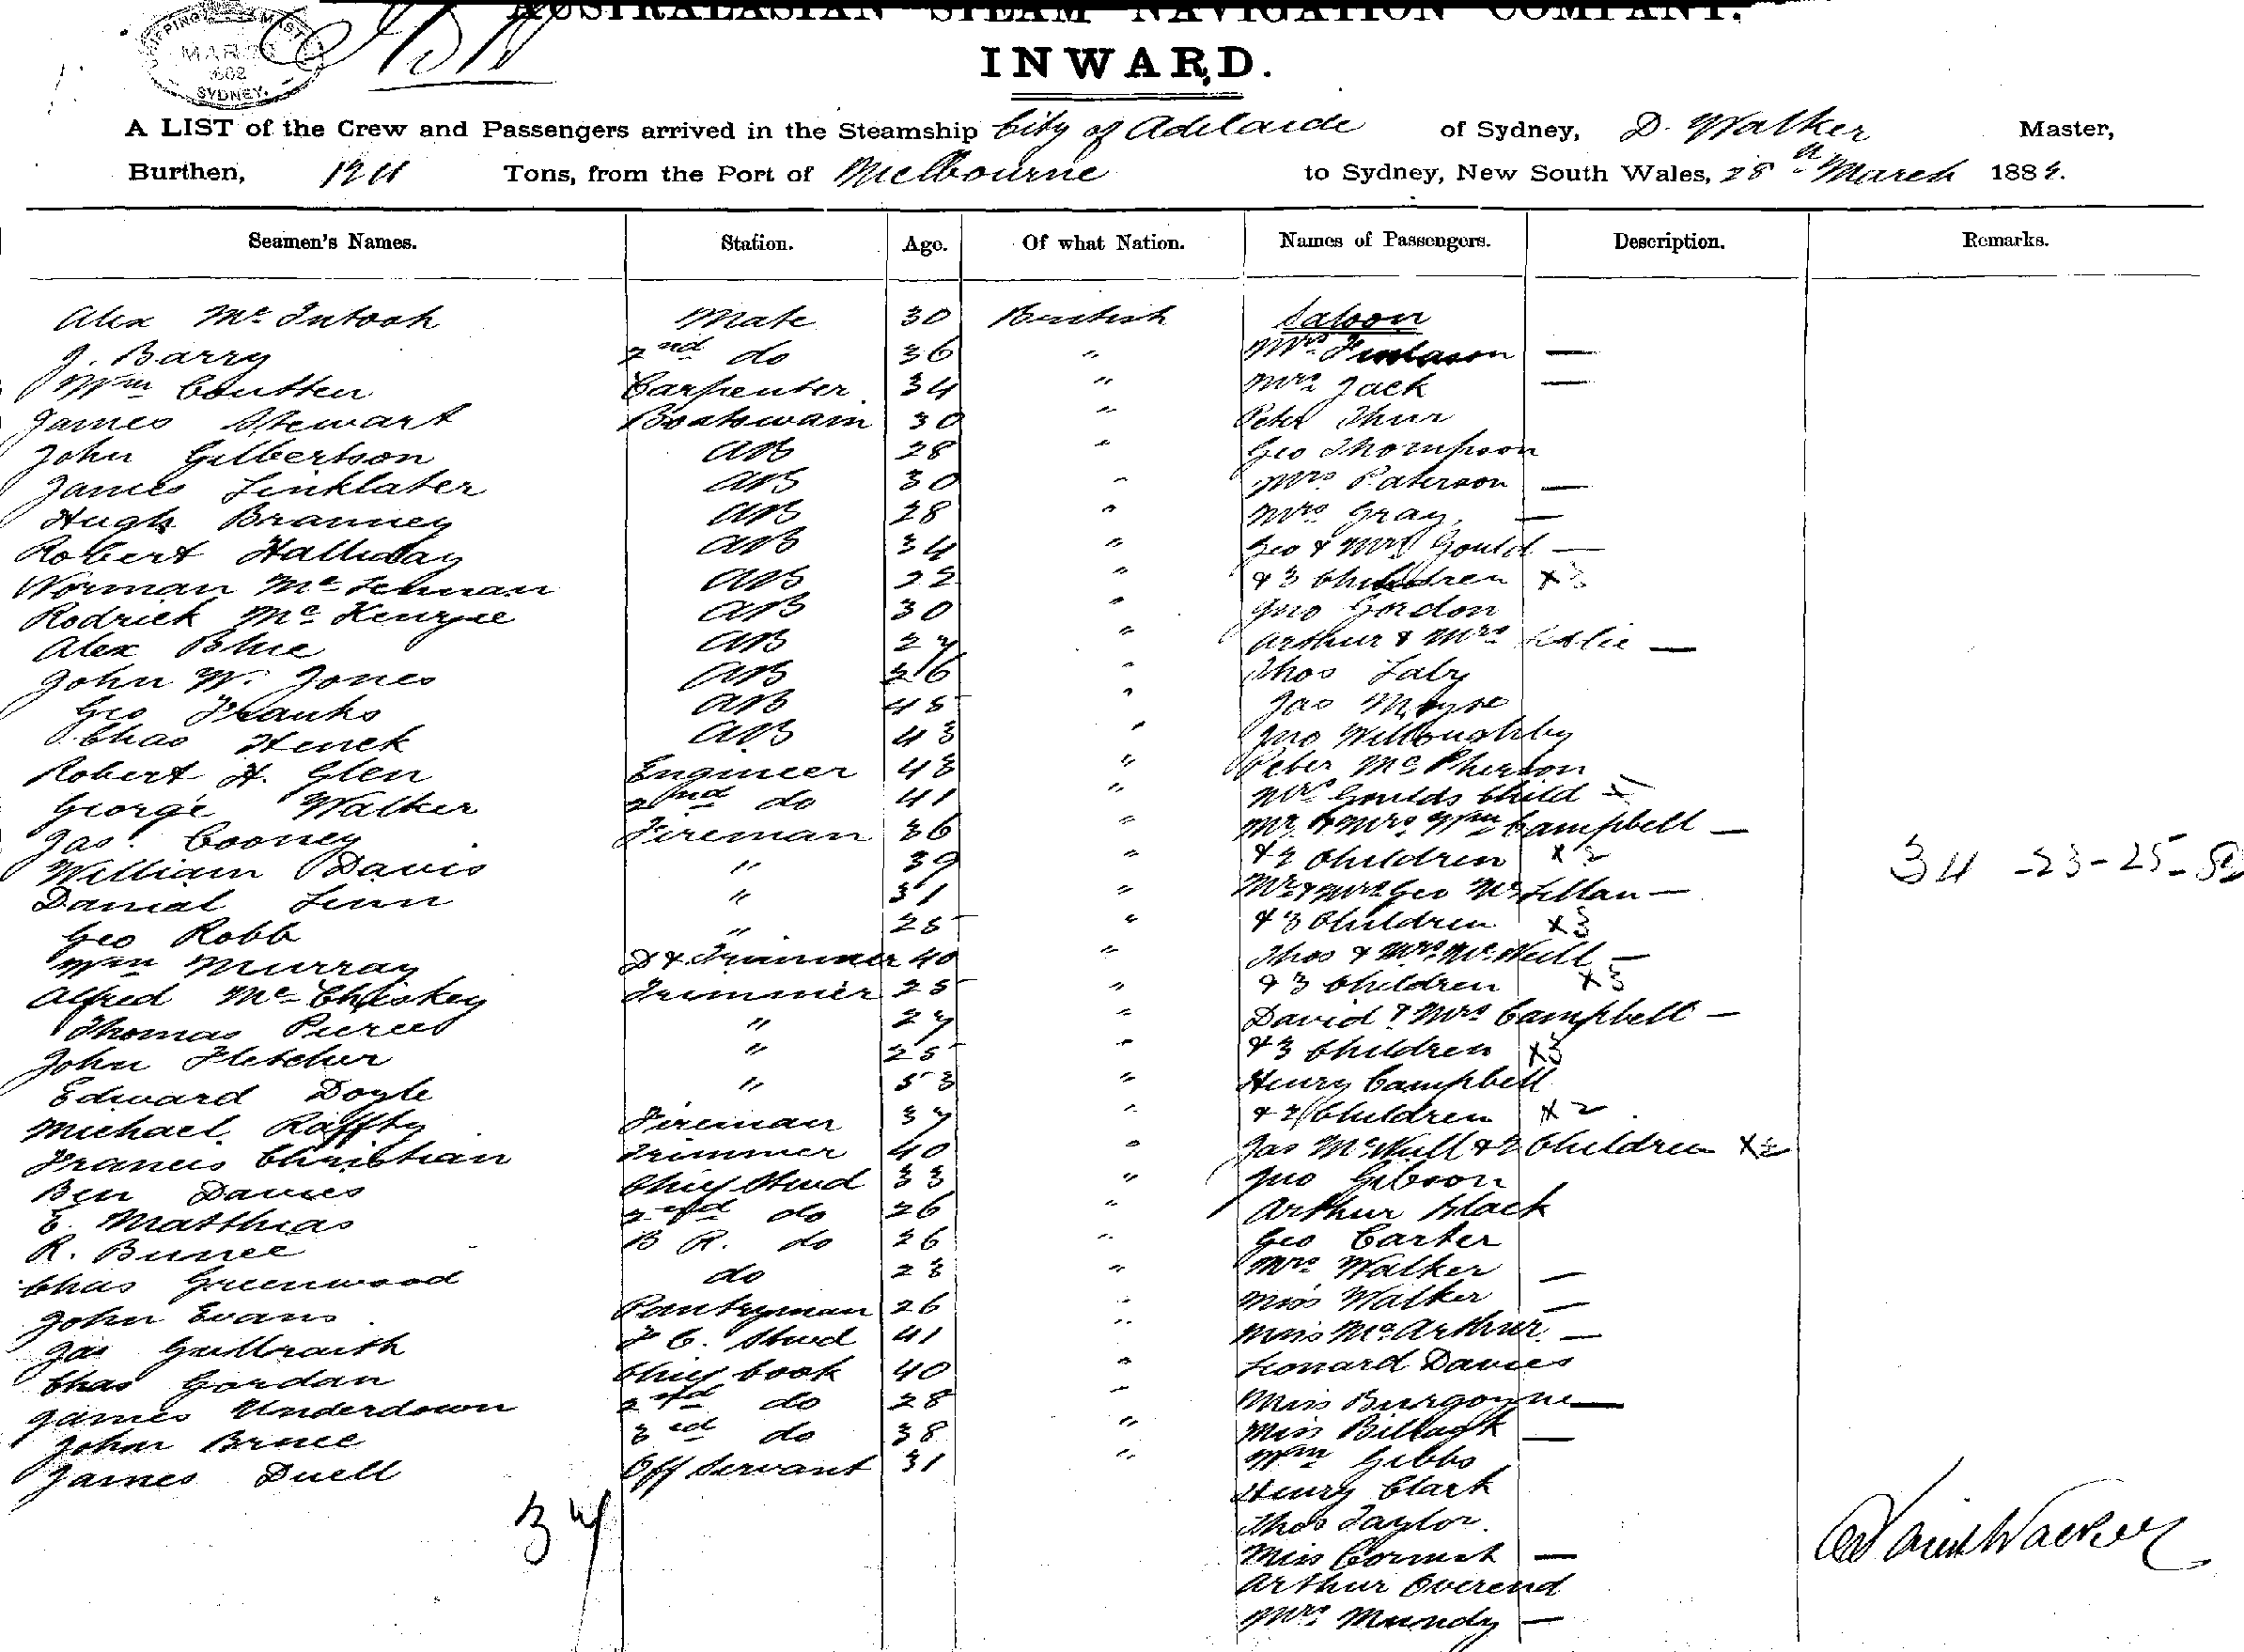 AUSTRALASIAN STEAM NAVIGATION COMPANY.
SHIPPING MAST
MAR 28
1882
SYDNEY.
INWARD.
A LIST of the Crew and Passengers arrived in the Steamship City of Adelaide of Sydney, D. Walker Master,
Burthen, 1211 Tons, from the Port of Melbourne to Sydney, New South Wales, 28th March 1882.
Seamen's Names. Station. Age. Of what Nation. Names of Passengers. Description. Remarks.
Alex McIntosh Mate 30 British Saloon
J. Barry 2nd do 36 " Mrs —
Wm Coutten Carpenter 34 " Mrs Jack —
James Stewart Boatswain 30 " Peter
John Gilbertson AB 28 " Geo Thompson
James Linklater AB 30 " Mrs Paterson —
Hugh Branney AB 28 " Mrs Gray —
Robert Halliday AB 34 " Geo & Mrs Gould —
Norman McLennan AB 22 " & 3 Children x3
Rodrick McKenzie AB 30 " Jno Gordon
Alex Blue AB 27 " Arthur & Mrs Leslie —
John W. Jones AB 26 " Thos Laby
Geo Franks AB 45 " Jas
Chas AB 43 " Jno Willoughby
Robert H. Glen Engineer 48 " Peter McPherson
George Walker 2nd do 41 " Mrs Goulds Child x
Jas. Cooney Fireman 36 " Mr & Mrs Wm Campbell —
William Davis " 39 " & 2 Children x2
Danial Linn " 31 " Mr & Mrs Geo McLellan — 34 -23-25-
Geo Robb " 25 " & 3 Children x3
Wm Murray D & Trimmer 40 " Thos & Mrs McNeill —
Alfred McChliskey Trimmer 25 " & 3 Children x3
Thomas " 27 " David & Mrs Campbell —
John Fletcher " 25 " & 3 Children x3
Edward Doyle " 53 " Henry Campbell
Michael Raffty Fireman 37 " & 2 Children x2
Francis Christian Trimmer 40 " Jas McNull & 2 Children x2
Ben Davies Chief Stwd 33 " Jno Gibson
E. Matthias 2nd do 26 " Arthur Black
R. Bunce B R. do 26 " Geo Carter
Chas Greenwood do 23 " Mrs Walker —
John Evans Pantryman 26 " Miss Walker —
Jas Gailbraith F C. Stwd 41 " Miss McArthur —
Chas Gordan Chief Cook 40 " Leonard Davies
James Underdown 2nd do 28 " Miss Burgoyne —
John Bruce 3rd do 38 " Miss —
James Duell Off Servant 31 " Wm Gibbs
Henry Clark
34 Thos Taylor.
Miss Cornish —
Arthur Overend
Mrs Mundy —
David Walker